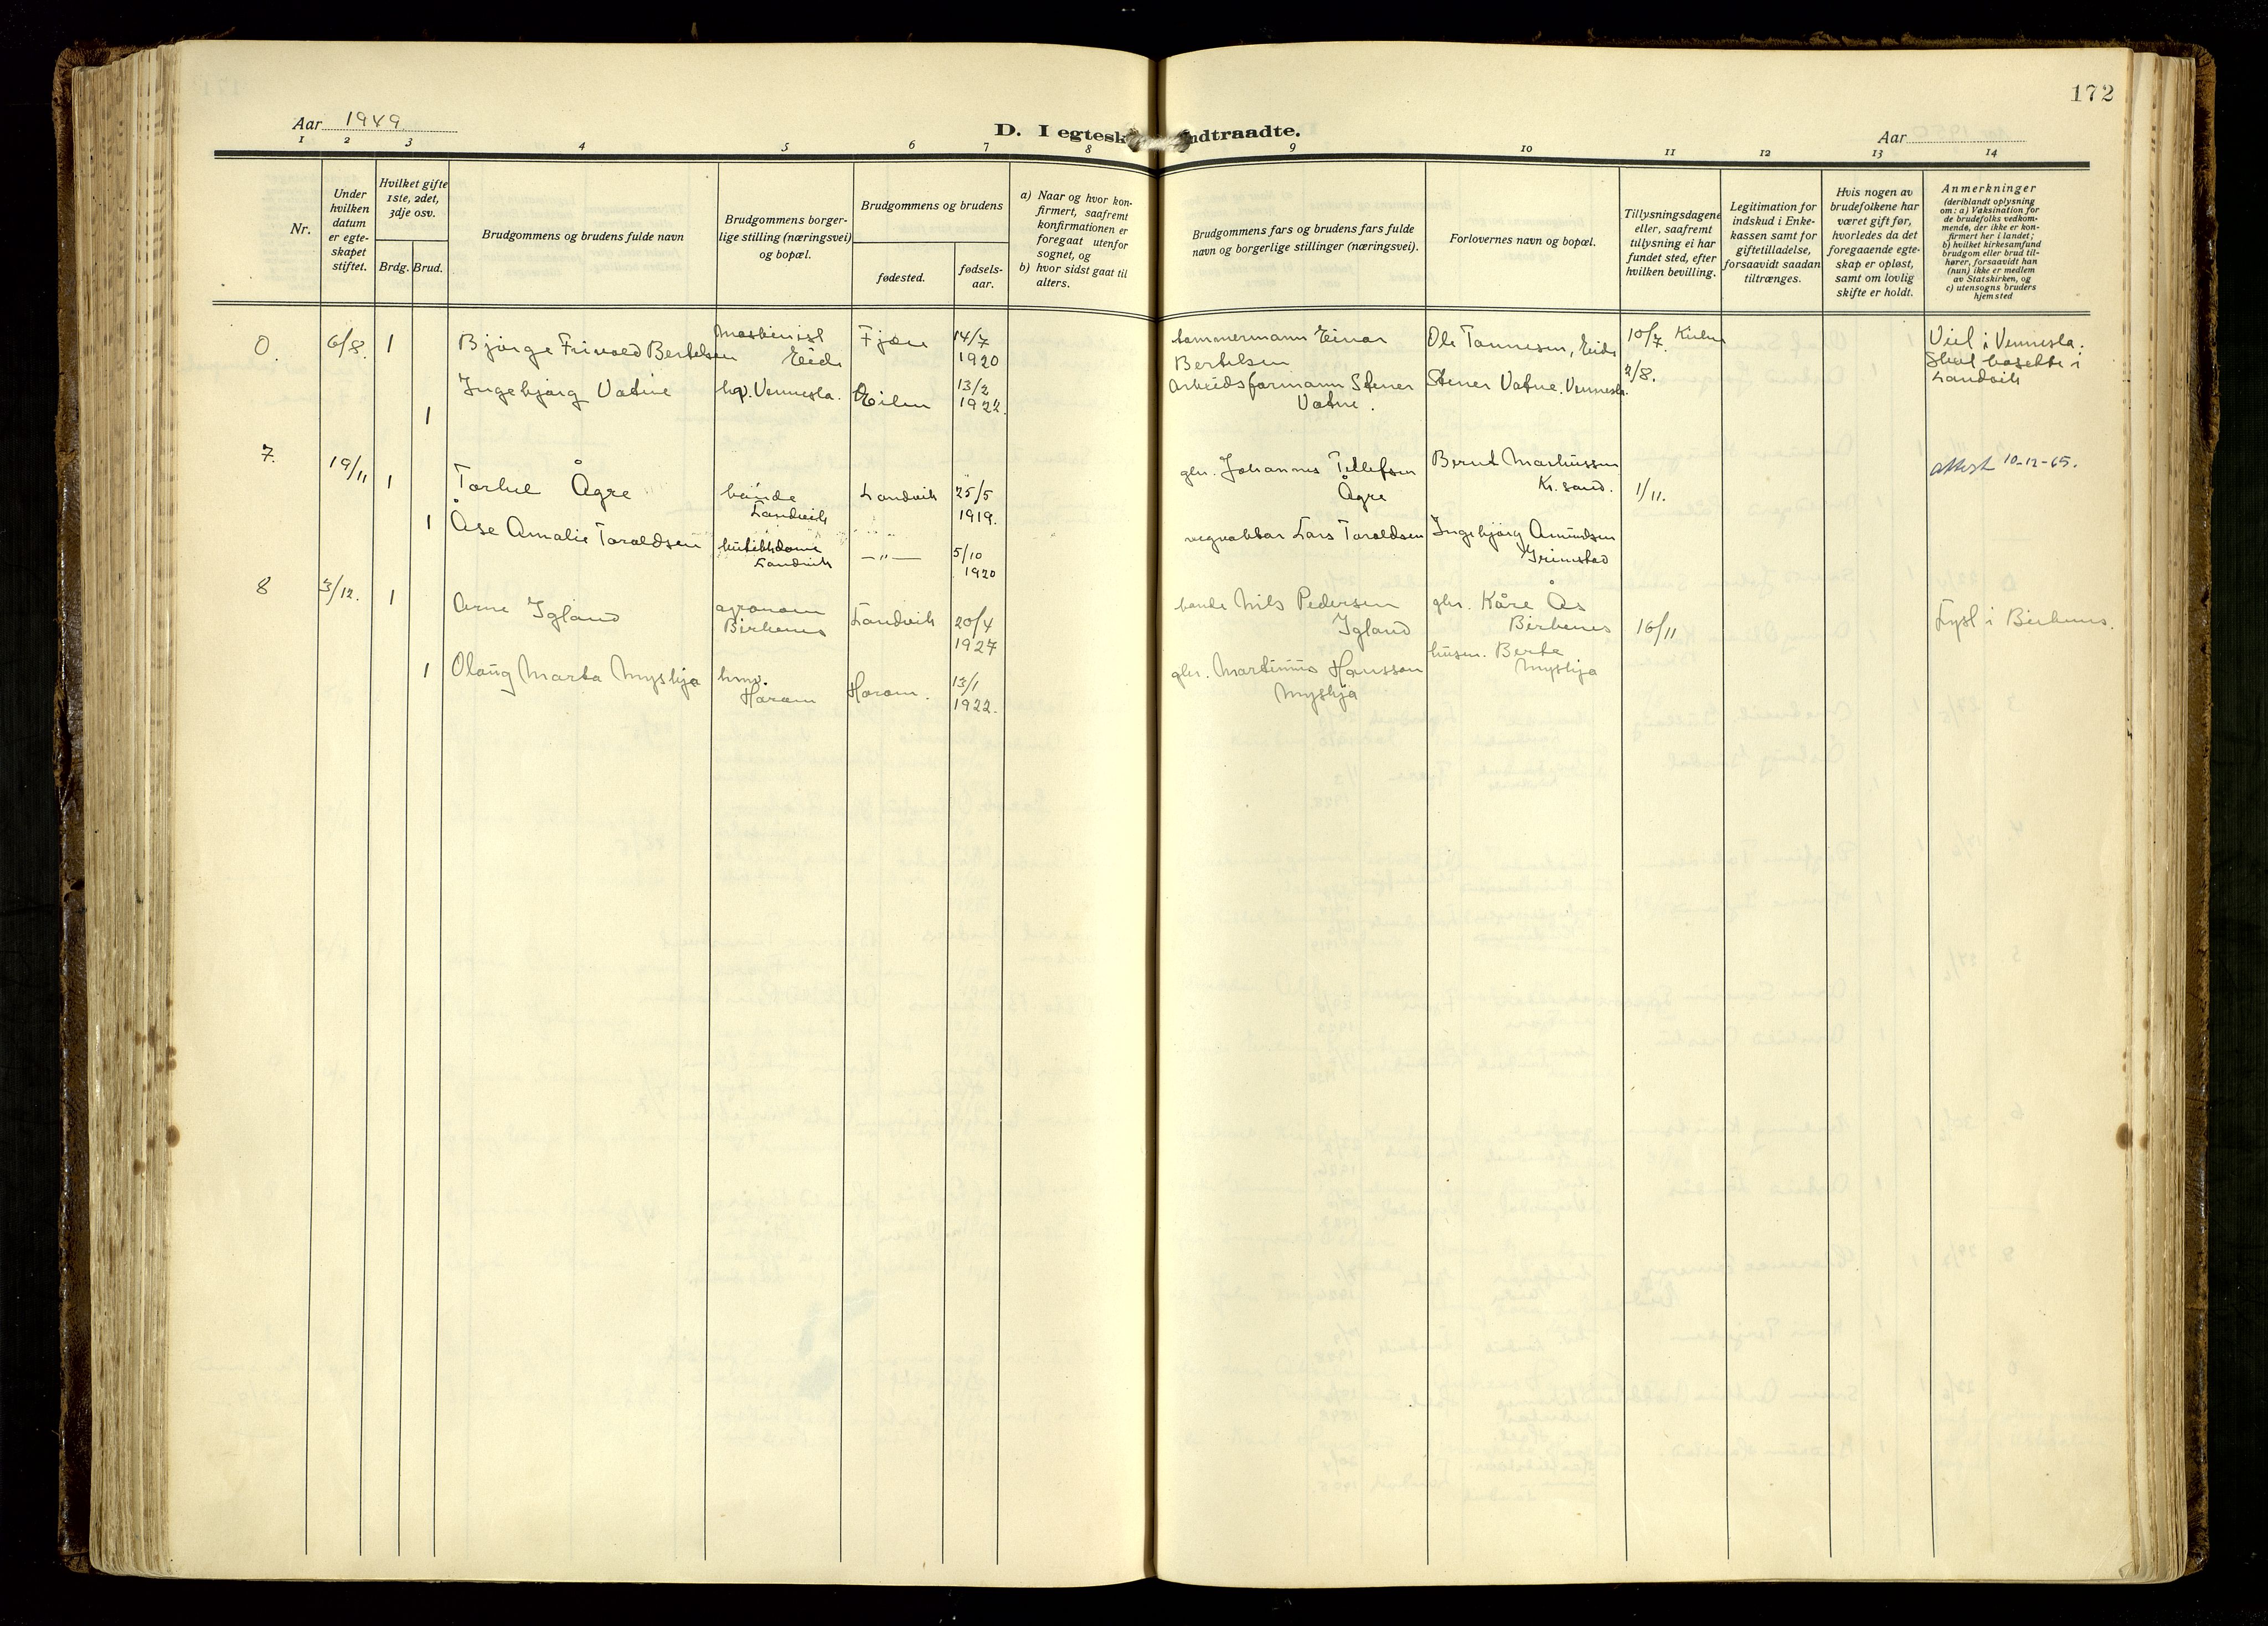 172
Aar 1949
D. I egtesk ndtraadte.
Aar
1 2 3 4 5 6 7 8 9 10 11 12 13 14
Nr.
Under
hvilken
datum
er egte-
skapet
stiftet.
Hvilket gifte
1ste, 2det,
3dje osv.
Brdg. Brud.
Brudgommens og brudens fulde navn
Brudgommens borger-
lige stilling (næringsvei)
og bopæl.
Brudgommens og brudens
fødested.
fødsels-
aar.
a) Naar og hvor kon-
firmert, saafremt
konfirmationen er
foregaat utenfor
sognet, og
b) hvor sidst gaat til
alters.
Brudgommens fars og brudens fars fulde
navn og borgerlige stillinger (næringsvei).
Forlovernes navn og bopæl.
Tillysningsdagene
eller, saafremt
tillysning ei har
fundet sted, efter
hvilken bevilling.
Legitimation for
indskud i Enke-
kassen samt for
giftetilladelse,
forsaavidt saadan
tiltrænges.
Hvis nogen av
brudefolkene har
været gift før,
hvorledes da det
foregaaende egte-
skap er opløst,
samt om lovlig
skifte er holdt.
Anmerkninger
(deriblandt oplysning
om: a) Vaksination for
de brudefolks vedkom-
mende, der ikke er kon-
firmert her i landet;
b) hvilket kirkesamfund
brudgom eller brud til-
hører, forsaavidt han
(hun) ikke er medlem
av Statskirken, og
c) utensogns bruders
hjemsted
0. 6/8. 1
Bjørge Frivold Bertelsen
Maskinist
Eide
Fjære
14/7
1920
tømmermann Einar
Bertelsen
Ole Tønnesen, Eide
10/7
Viet i Vennesla.
Skal bosette i
Landvik
1
Ingebjørg Vatne
Vennesla.
13/2
1922.
Arbeidsformann Stener
Vatne.
Stener Vatne. Vennesla.
2/8.
7. 19/11 1
Torkel Ågre
bonde
Landvik
Landvik
25/5
1919.
gbr. Johannes Tellefsen
Ågre
Bernt Markussen
Kr. sand.
1/11.
attest 10-12-65.
1
Åse Amalie Taraldsen
butikkdame
Landvik
— " —
5/10
1920
vegvokter Lars Taraldsen
Ingebjørg Amundsen
Grimstad
8 3/12. 1
Arne Igland
agronom
Birkenes
Landvik
20/4
1927
bonde Nils Pedersen
Igland
gbr. Kåre Ås
Birkenes
16/11
Lyst i Birkenes.
1
Olaug Marta Myskja
Haram
Haram.
13/1
1922.
gbr. Martinus Hansson
Myskja
Berte
Myskja